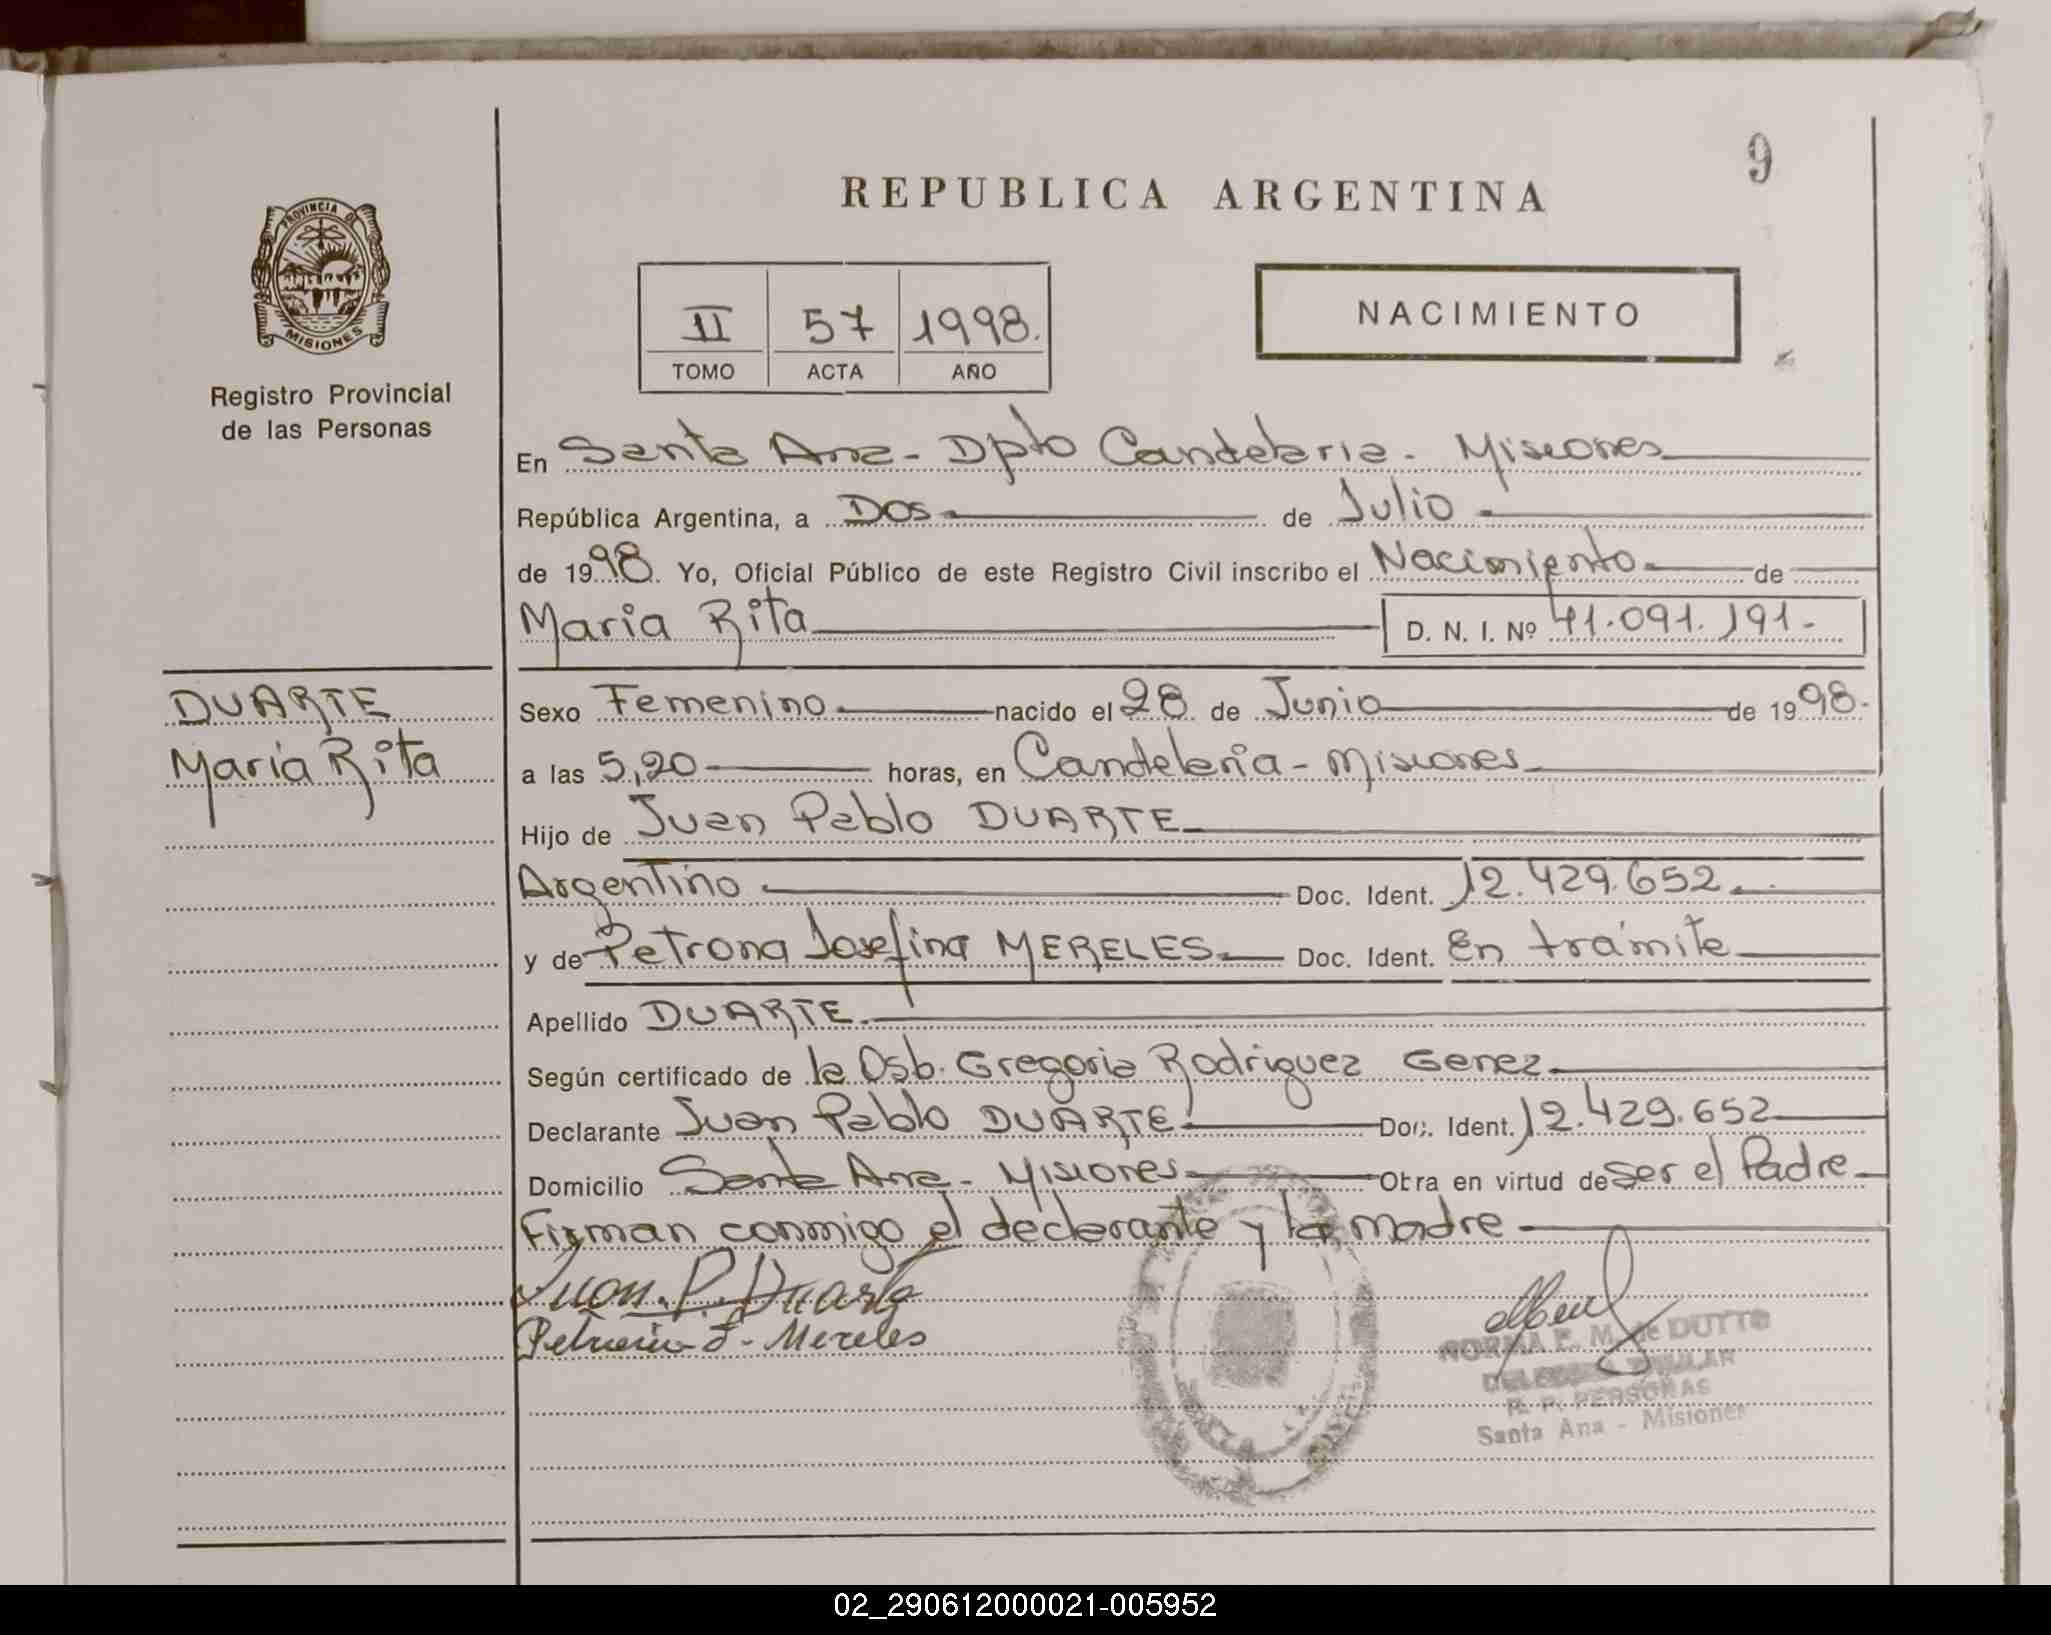 9
REPUBLICA ARGENTINA
PROVINCIA DE
MISIONES
Registro Provincial
de las Personas
II 57 1998.
TOMO ACTA AÑO
NACIMIENTO
En Santa Ana - Dpto Candelaria - Misiones
República Argentina, a Dos de Julio
de 1998. Yo, Oficial Público de este Registro Civil inscribo el Nacimiento de
Maria Rita D. N. I. Nº 41.091.191.-
DUARTE
María Rita
Sexo Femenino nacido el 28 de Junio de 1998.
a las 5,20 horas, en Candelaria - Misiones
Hijo de Juan Pablo DUARTE
Argentino Doc. Ident. 12.429.652.
y de Petrona Josefina MERELES Doc. Ident. En trámite
Apellido DUARTE
Según certificado de la Osb. Gregoria Rodriguez Genez
Declarante Juan Pablo DUARTE Doc. Ident. 12.429.652
Domicilio Santa Ana - Misiones Obra en virtud de ser el Padre
Firman conmigo el declarante y la madre
Juan. P. Duarte
J - Mereles
NORMA E. M. de DUTTO
R. P. PERSONAS
Santa Ana - Misiones
02_290612000021-005952